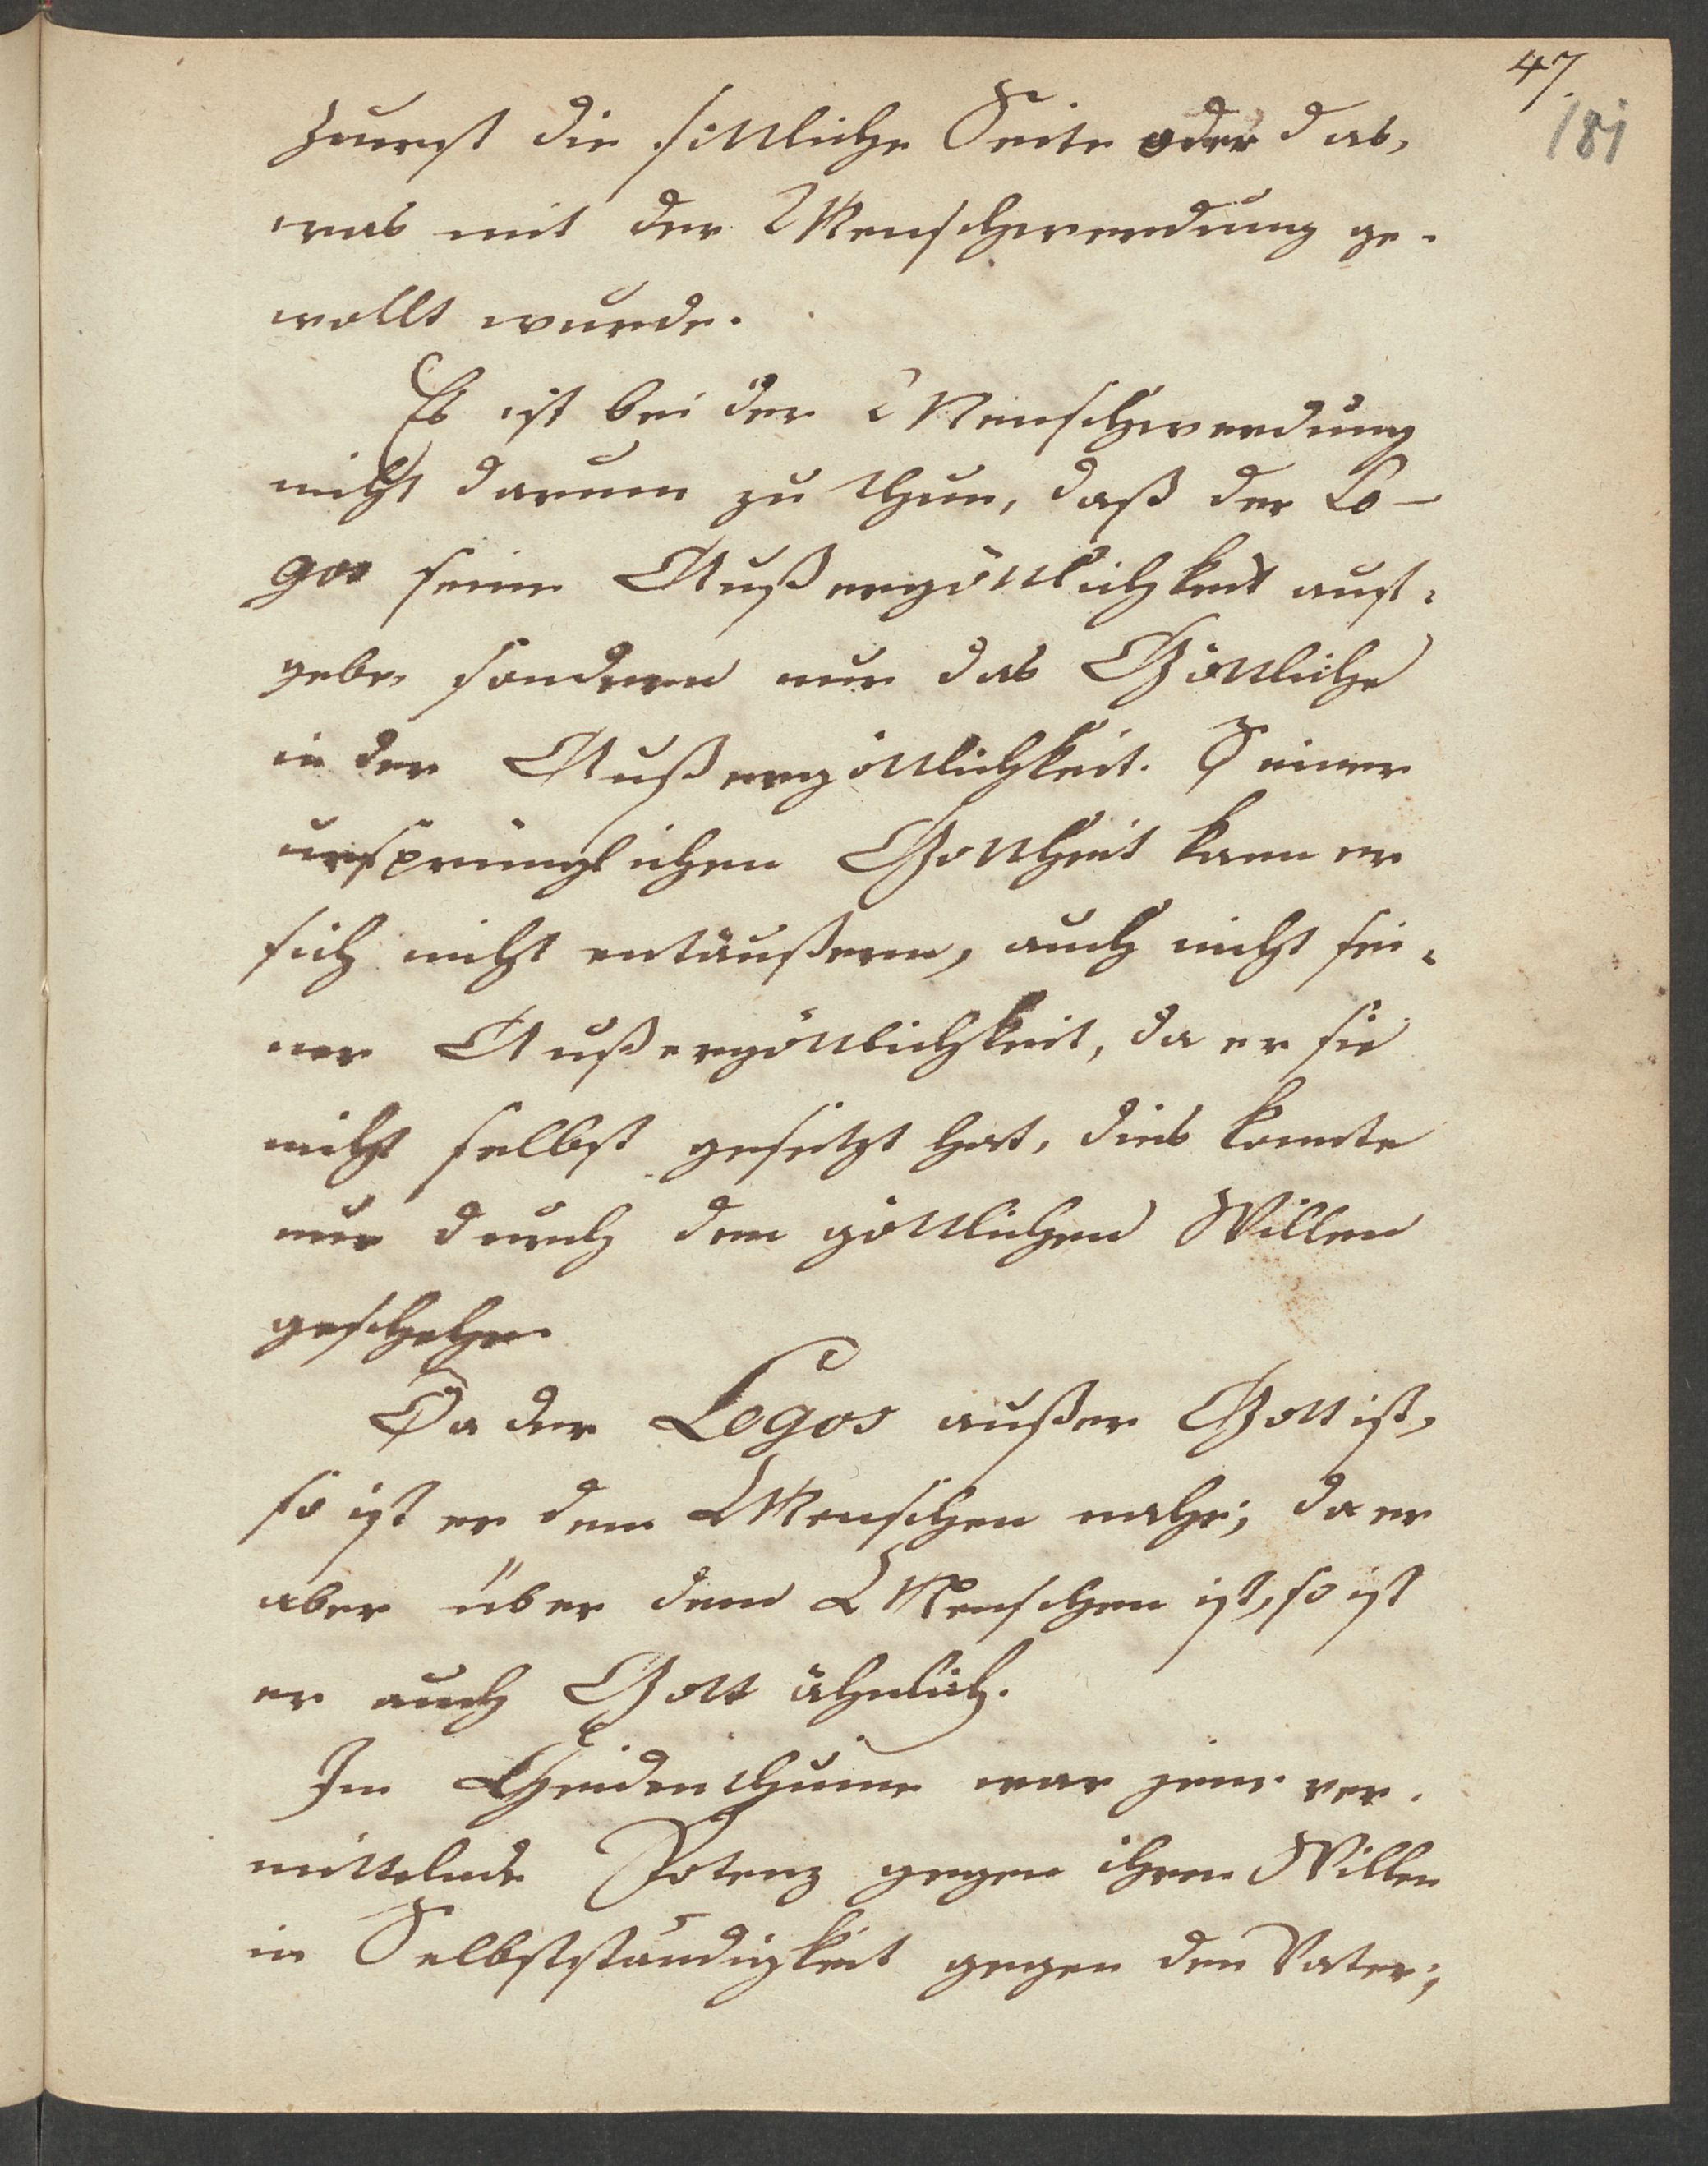 47.
181
zuerst die sittliche Seite oder das,
was mit der Menschwerdung ge-
wollt wurde.
Es ist bei der Menschwerdung
nicht darum zu thun, daß der Lo-
gos seine Außergöttlichkeit auf-
gebe, sondern nur das Göttliche
in der Außergöttlichkeit. Seiner
ursprünglichen Gottheit kann er
sich nicht entäußern, auch nicht sei-
ner Außergöttlichkeit, da er sie
nicht selbst gesetzt hat, dies konnte
nur durch den göttlichen Willen
geschehen.
Da der Logos außer Gott ist,
so ist er dem Menschen nahe; da er
aber über dem Menschen ist, so ist
er auch Gott ähnlich.
Im Heidenthume war jene ver-
mittelnde Potenz gegen ihren Willen
in Selbstständigkeit gegen den Vater;